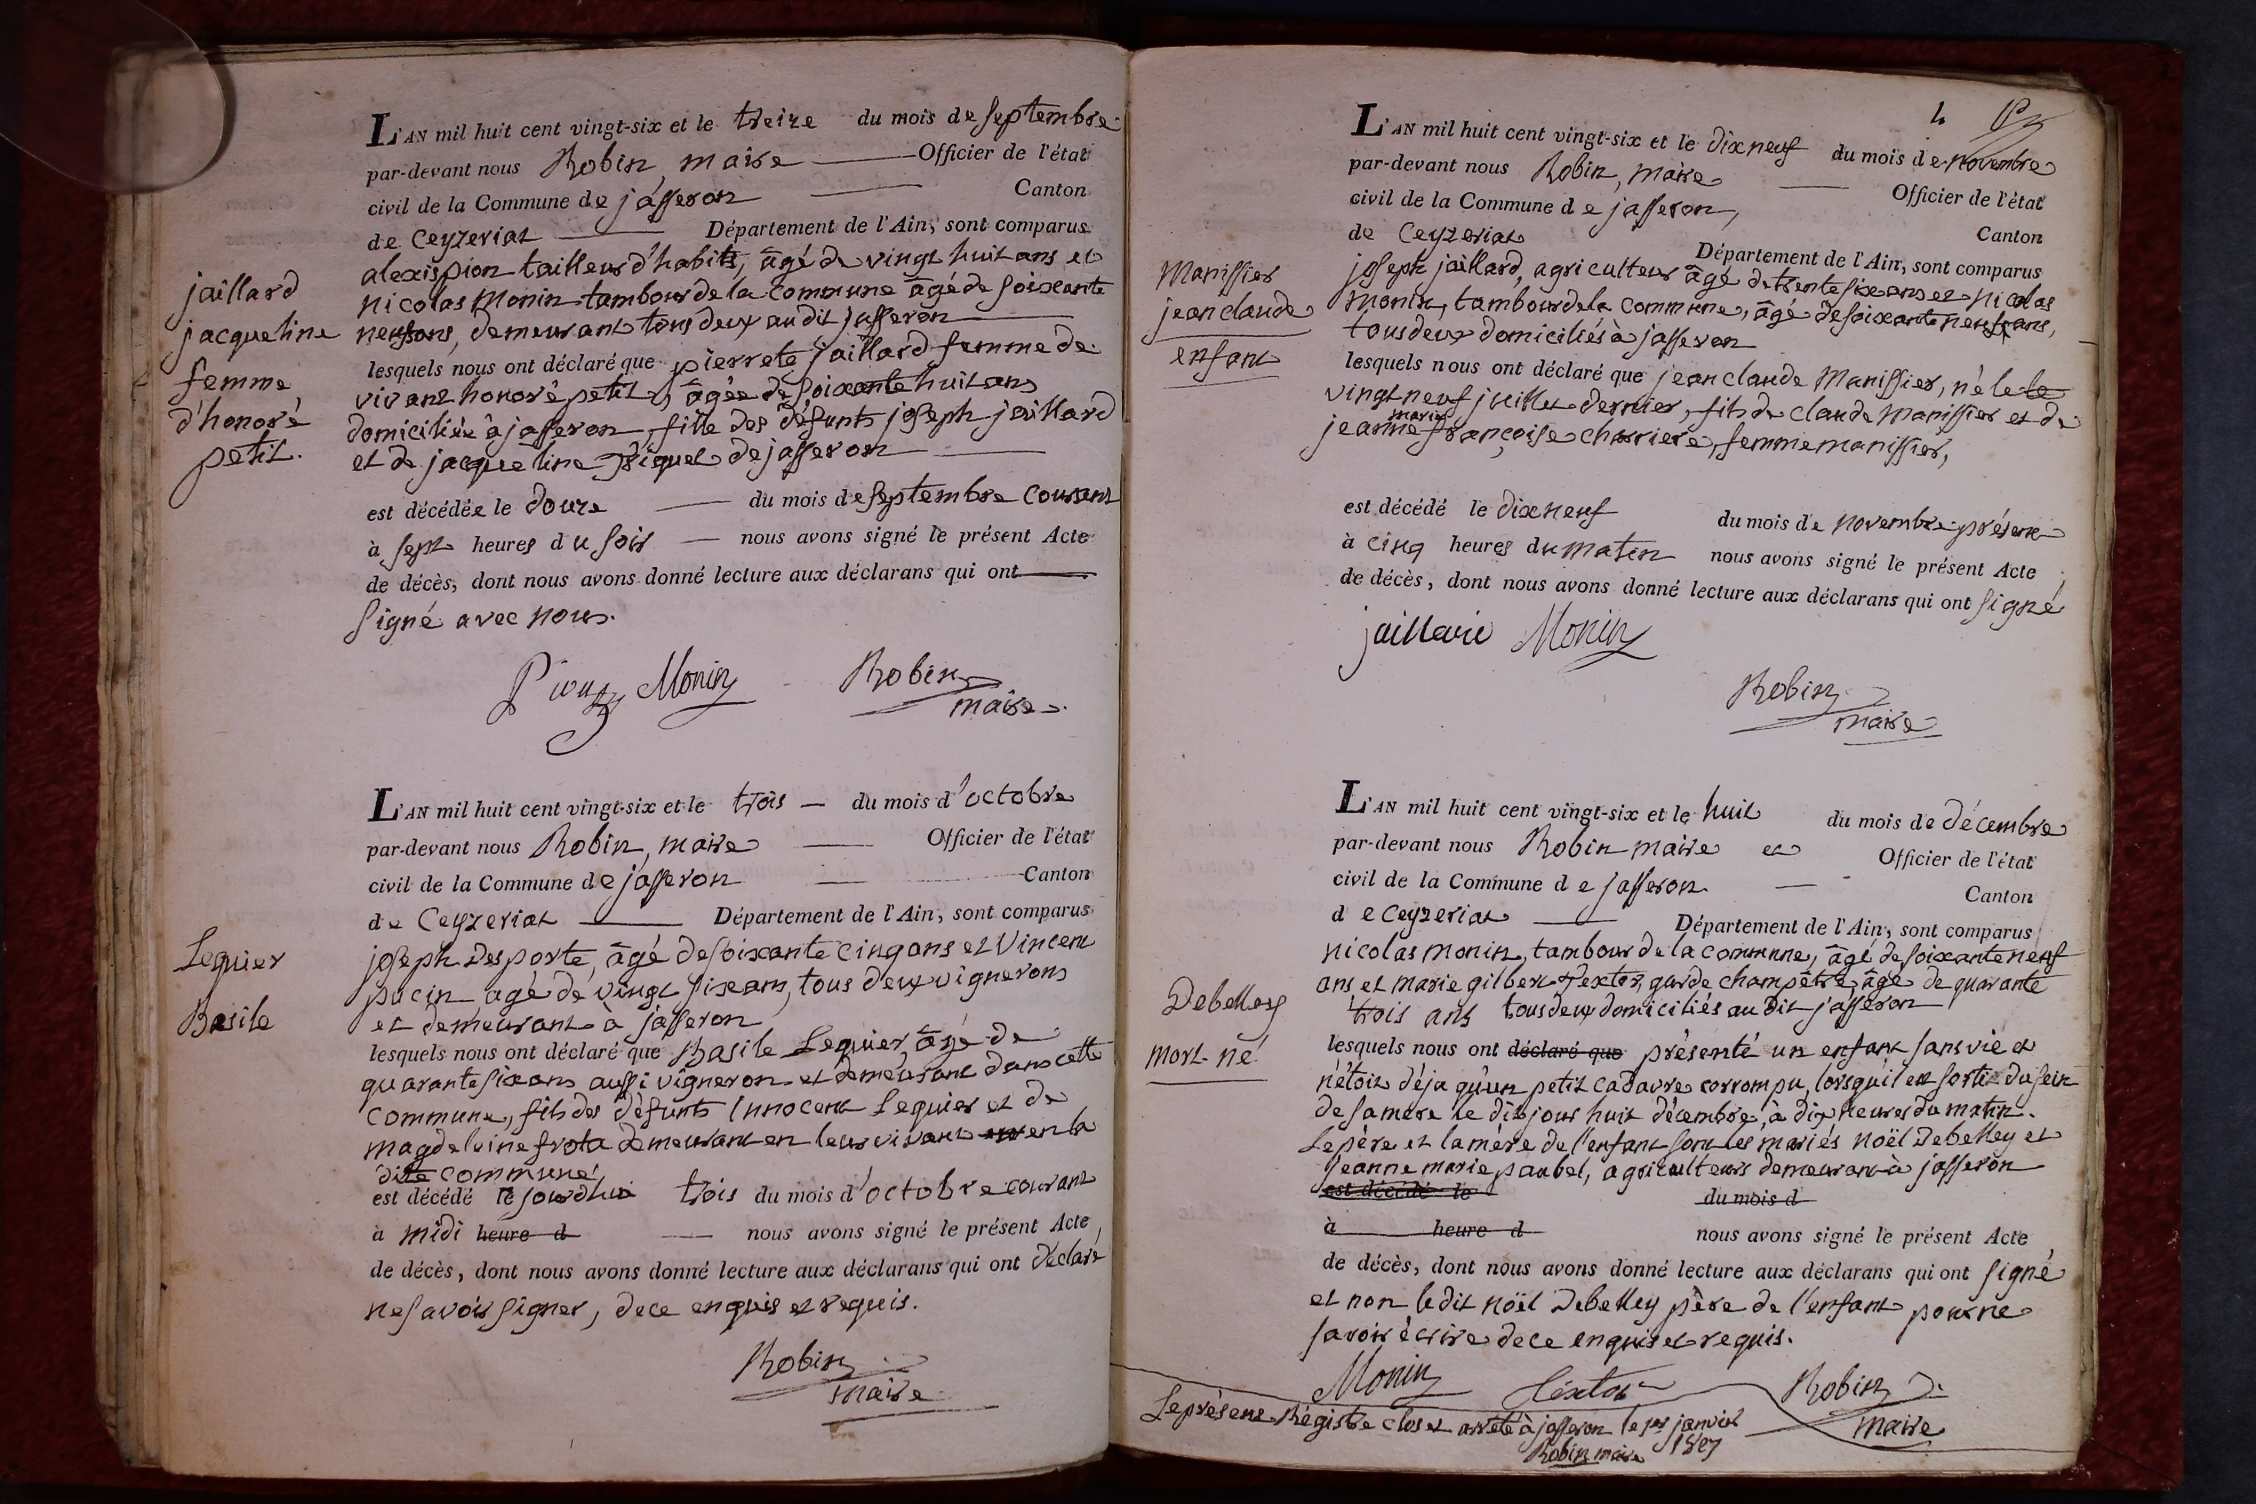 L'AN mil huit cent vingt-six et le treize du mois de septembre
par-devant nous Robin, maire Officier de l'état
civil de la Commune de jasseron Canton
de Ceyzeriat Département de l'Ain, sont comparus
alexis pion tailleur d'habits, âgé de vingt huit ans et
nicolas Monin tambour de la commune âgé de soixante
neuf ans, demeurant tous deux au dit jasseron
lesquels nous ont déclaré que pierrete jaillard femme de
vivant honoré petit, âgée de soixante huit ans
domiciliée à jasseron, fille des défunts joseph jaillard
et de jacqueline de jasseron
est décédée le douze du mois de septembre courant
à sept heures du soir nous avons signé le présent Acte
de décès, dont nous avons donné lecture aux déclarans qui ont
signé avec nous.
jaillard
jacqueline
femme
d'honoré
petit.
Pion Monin Robin
maire
L'AN mil huit cent vingt-six et le trois du mois d'octobre
par-devant nous Robin, maire Officier de l'état
civil de la Commune de jasseron Canton
de Ceyzeriat Département de l'Ain, sont comparus
joseph Desporte, âgé de soixante cinq ans et Vincent
pucin agé de vingt six ans, tous deux vignerons
et demeurant à jasseron
lesquels nous ont déclaré que Basile Lequier, âgé de
quarante six ans aussi vigneron et demeurant dans cette
commune, fils des défunts innocent Lequier et de
magdeleine frota demeurant en leur vivant en la
dite commune
est décédé le jourd'hui trois du mois d'octobre courant
à midi heure d nous avons signé le présent Acte
de décès, dont nous avons donné lecture aux déclarans qui ont déclaré
ne savoir signer, de ce enquis et requis.
Lequier
Basile
Robin
maire
4
L'AN mil huit cent vingt-six et le dix neuf du mois de novembre
par-devant nous Robin, maire Officier de l'état
civil de la Commune de jasseron, Canton
de Ceyzeriat Département de l'Ain, sont comparus
joseph jaillard, agriculteur âgé de trente six ans et nicolas
monin, tambour de la commune, âgé de soixante neuf ans,
tous deux domiciliés à jasseron
lesquels nous ont déclaré que jean claude Manissier, né le le
vingt neuf juillet dernier, fils de claude Manissier et de
jeanne marie françoise charriere, femme manissier,
est décédé le dix neuf du mois de novembre présent
à cinq heures du matin nous avons signé le présent Acte
de décès, dont nous avons donné lecture aux déclarans qui ont signé
Manissier
jean claude
enfant
jaillard Monin
Robin
maire
L'AN mil huit cent vingt-six et le huit du mois de décembre
par-devant nous Robin maire et Officier de l'état
civil de la Commune de jasseron Canton
de Ceyzeriat Département de l'Ain, sont comparus
nicolas monin, tambour de la commune, âgé de soixante neuf
ans et marie gilbert textor, garde champêtre, âgé de quarante
trois ans tous deux domiciliés au dit jasseron
lesquels nous ont déclaré que présenté un enfant sans vie et
n'étoit déja qu'un petit cadavre corrompu, lorsqu'il est sorti du sein
de sa mere le dit jour huit décembre, à dix heures du matin.
Le père et la mère de l'enfant sont les mariés noël Debelley et
jeanne marie paubel, agriculteurs demeurant à jasseron
est décédé le du mois d
à heure d nous avons signé le présent Acte
de décès, dont nous avons donné lecture aux déclarans qui ont signé
et non le dit noël Debelley père de l'enfant pour ne
savoir écrire de ce enquis et requis.
Debelley
mort-né
Monin Textor Robin
maire
Le présent Régistre clos et arrêté à jasseron le 1er janvier
1827
Robin maire